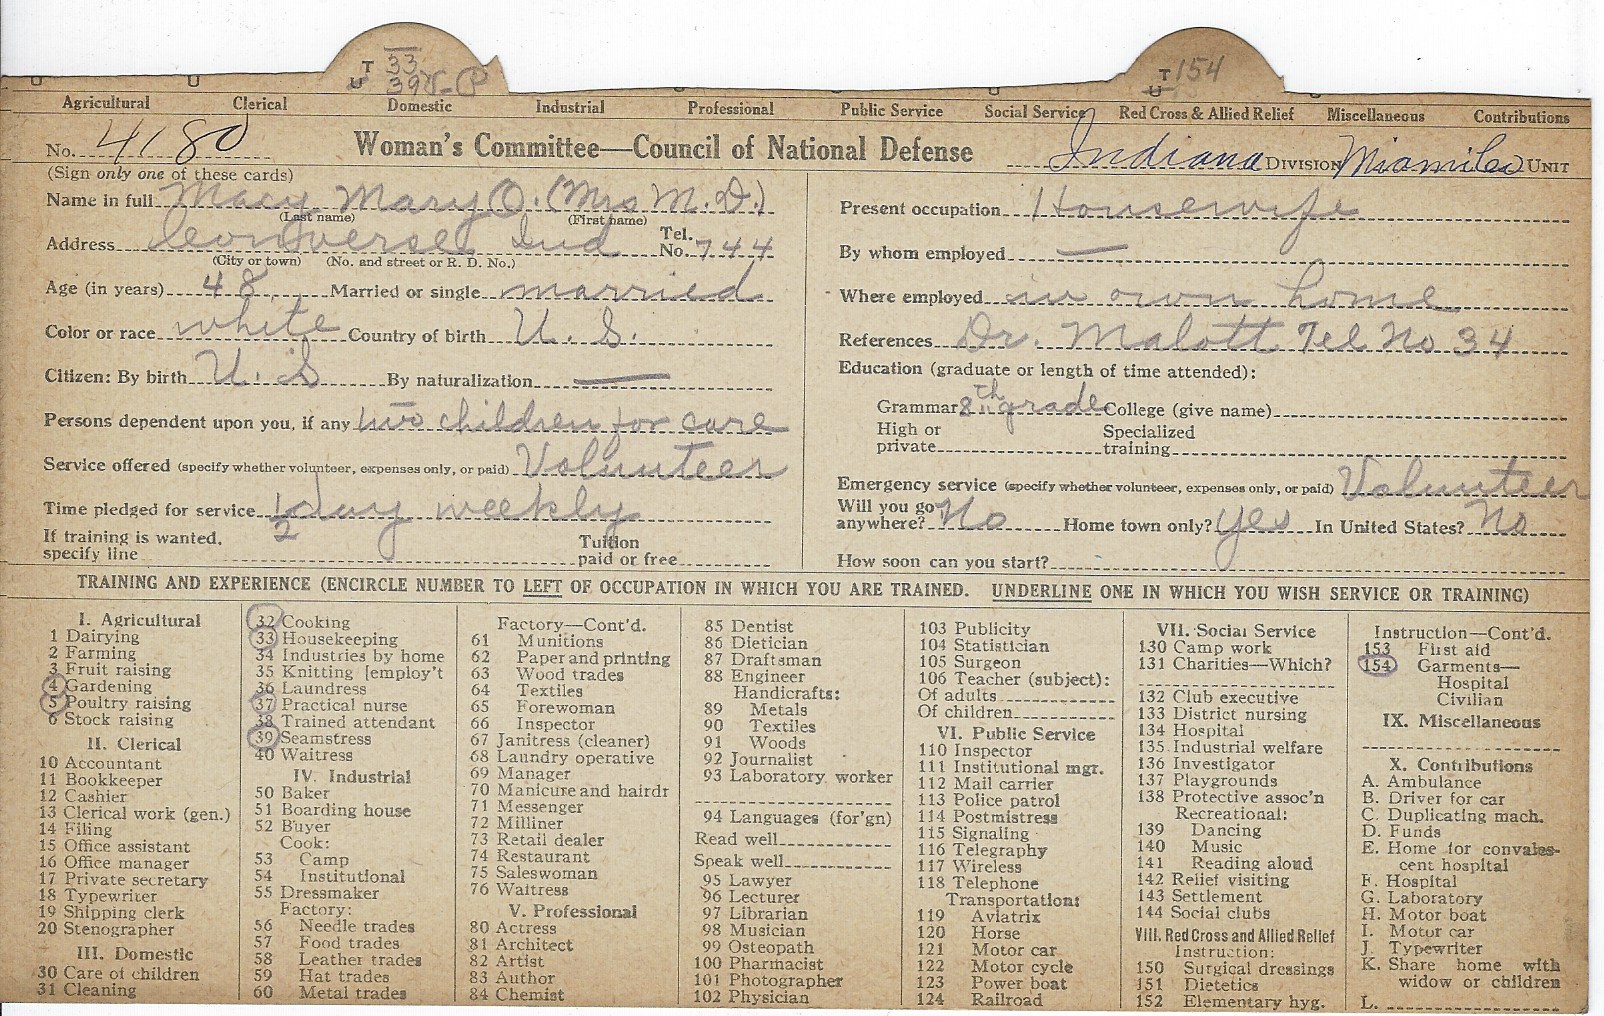 T 33
U 39
T 154
U
Agricultural Clerical Domestic Industrial Professional Public Service Social Service Red Cross & Allied Relief Miscellaneous Contributions
No. 4180 Woman's Committee—Council of National Defense Indiana DIVISION UNIT
(Sign only one of these cards)
Name in full Macy Mary O. (Mrs M. D.)
(Last name) (First name)
Address Converse Ind Tel. No. 744
(City or town) (No. and street or R. D. No.)
Age (in years) 48 Married or single married
Color or race white Country of birth U. S.
Citizen: By birth U. S By naturalization —
Persons dependent upon you, if any two children for care
Service offered (specify whether volunteer, expenses only, or paid) Volunteer
Time pledged for service 1/2 day weekly
If training is wanted, specify line Tuition paid or free
Present occupation Housewife
By whom employed —
Where employed in own home
References Dr. Malott Tel No 34
Education (graduate or length of time attended):
Grammar 8th grade College (give name)
High or private Specialized training
Emergency service (specify whether volunteer, expenses only, or paid) Volunteer
Will you go anywhere? No Home town only? yes In United States? No
How soon can you start?
TRAINING AND EXPERIENCE (ENCIRCLE NUMBER TO LEFT OF OCCUPATION IN WHICH YOU ARE TRAINED. UNDERLINE ONE IN WHICH YOU WISH SERVICE OR TRAINING)
I. Agricultural
1 Dairying
2 Farming
3 Fruit raising
4 Gardening
5 Poultry raising
6 Stock raising
II. Clerical
10 Accountant
11 Bookkeeper
12 Cashier
13 Clerical work (gen.)
14 Filing
15 Office assistant
16 Office manager
17 Private secretary
18 Typewriter
19 Shipping clerk
20 Stenographer
III. Domestic
30 Care of children
31 Cleaning
32 Cooking
33 Housekeeping
34 Industries by home
35 Knitting [employ't
36 Laundress
37 Practical nurse
38 Trained attendant
39 Seamstress
40 Waitress
IV. Industrial
50 Baker
51 Boarding house
52 Buyer
Cook:
53 Camp
54 Institutional
55 Dressmaker
Factory:
56 Needle trades
57 Food trades
58 Leather trades
59 Hat trades
60 Metal trades
Factory—Cont'd.
61 Munitions
62 Paper and printing
63 Wood trades
64 Textiles
65 Forewoman
66 Inspector
67 Janitress (cleaner)
68 Laundry operative
69 Manager
70 Manicure and hairdr
71 Messenger
72 Milliner
73 Retail dealer
74 Restaurant
75 Saleswoman
76 Waitress
V. Professional
80 Actress
81 Architect
82 Artist
83 Author
84 Chemist
85 Dentist
86 Dietician
87 Draftsman
88 Engineer
Handicrafts:
89 Metals
90 Textiles
91 Woods
92 Journalist
93 Laboratory worker
94 Languages (for'gn)
Read well
Speak well
95 Lawyer
96 Lecturer
97 Librarian
98 Musician
99 Osteopath
100 Pharmacist
101 Photographer
102 Physician
103 Publicity
104 Statistician
105 Surgeon
106 Teacher (subject):
Of adults
Of children
VI. Public Service
110 Inspector
111 Institutional mgr.
112 Mail carrier
113 Police patrol
114 Postmistress
115 Signaling
116 Telegraphy
117 Wireless
118 Telephone
Transportation:
119 Aviatrix
120 Horse
121 Motor car
122 Motor cycle
123 Power boat
124 Railroad
VII. Social Service
130 Camp work
131 Charities—Which?
132 Club executive
133 District nursing
134 Hospital
135 Industrial welfare
136 Investigator
137 Playgrounds
138 Protective assoc'n
Recreational:
139 Dancing
140 Music
141 Reading aloud
142 Relief visiting
143 Settlement
144 Social clubs
VIII. Red Cross and Allied Relief
Instruction:
150 Surgical dressings
151 Dietetics
152 Elementary hyg.
Instruction—Cont'd.
153 First aid
154 Garments—
Hospital
Civilian
IX. Miscellaneous
X. Contributions
A. Ambulance
B. Driver for car
C. Duplicating mach.
D. Funds
E. Home for convales-
cent hospital
F. Hospital
G. Laboratory
H. Motor boat
I. Motor car
J. Typewriter
K. Share home with
widow or children
L.